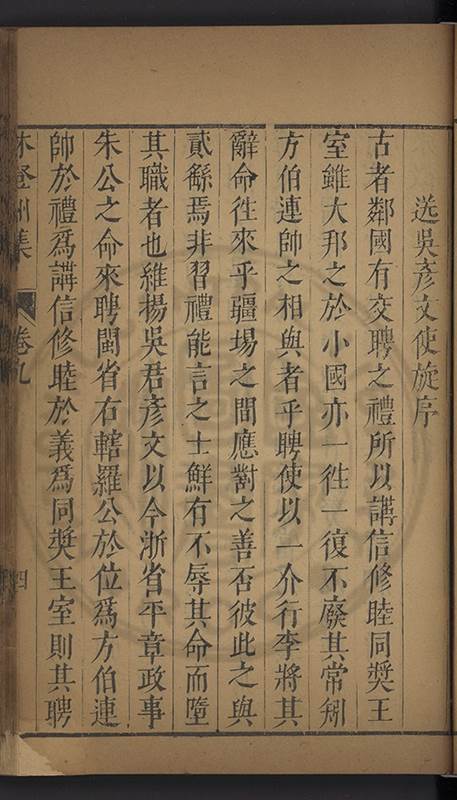 送吳彥文使旋序
古者鄰國有交聘之禮所以講信修睦同奬王
室雖大邦之於小國亦一徃一復不廢其常矧
方伯連帥之相與者乎聘使以一介行李將其
辭命徃來乎疆埸之間應對之善否彼此之與
貳繇焉非習禮能言之士鮮有不辱其命而墮
其職者也維揚吳君彥文以今浙省平章政事
朱公之命來聘閩省右轄羅公於位爲方伯連
帥於禮爲講信修睦於義爲同奬王室則其聘
林登州集 卷九 四